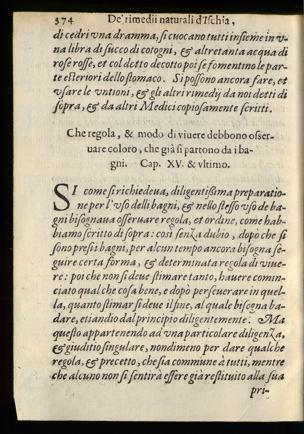 374 De' rimedii naturali d'Ischia,
di cedri vna dramma, si cuocano tutti insieme in v-
na libra di succo di cotogni, & altretanta acqua di
rose rosse, et col detto decotto poi se fomentino le par-
te esteriori dello stomaco. Si possono ancora fare, et
vsare le vntioni, & gli altri rimedij da noi detti di
sopra, & da altri Medici copiosamente scritti.
Che regola, & modo di viuere debbono osser-
uare coloro, che già si partono da i ba-
gni. Cap. XV. & vltimo.
SI come si richiedeua, diligentissima preparatio-
ne per l'vso delli bagni, & nello stesso vso de ba-
gni bisognaua osseruare regola, et ordine, come hab-
biamo scritto di sopra: così senza dubio, dopò che si
sono presi i bagni, per alcun tempo ancora bisogna se-
guire certa forma, & determinata regola di viue-
re: poi che non si deue stimare tanto, hauere comin-
ciato qual che cosa bene, e dopò perseuerare in quel-
la, quanto stimar si deue il fine, al quale bisogna ba-
dare, etiandio dal principio diligentemente. Ma
questo appartenendo ad vna particolare diligenza,
& giuditio singulare, nondimeno per dare qualche
regola, & precetto, che sia commune à tutti, mentre
che alcuno non si sentirà essere già restituito alla sua
pri-